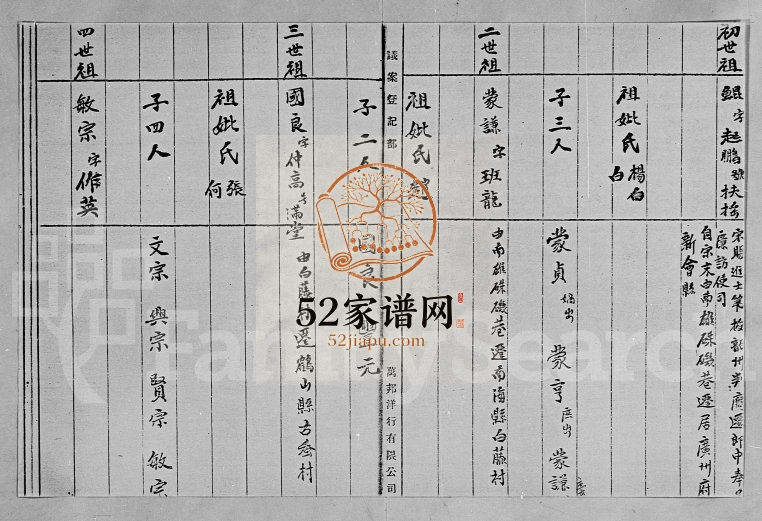 初世祖
鯤 字 起鵬 號 扶搖
宋賜進士 廣 遷 郎中 奉
廉訪使司
自宋末由南雄硃磯巷遷居廣州府
新會縣
祖妣氏 楊 白
子三人
蒙貞 嫡出 蒙亨 庶出 蒙謙
二世祖
蒙謙 字 班龍
由南雄硃磯巷遷南海縣白藤村
祖妣氏
議案登記部
萬邦洋行有限公司
子二人
國良 元
三世祖
國良 字 仲高 号 滿堂
由白藤 遷鶴山縣古 村
祖妣氏 張 何
子四人
文宗 興宗 賢宗 敏宗
四世祖
敏宗 字 作英
52家谱网
52jiapu.com
FamilySearch